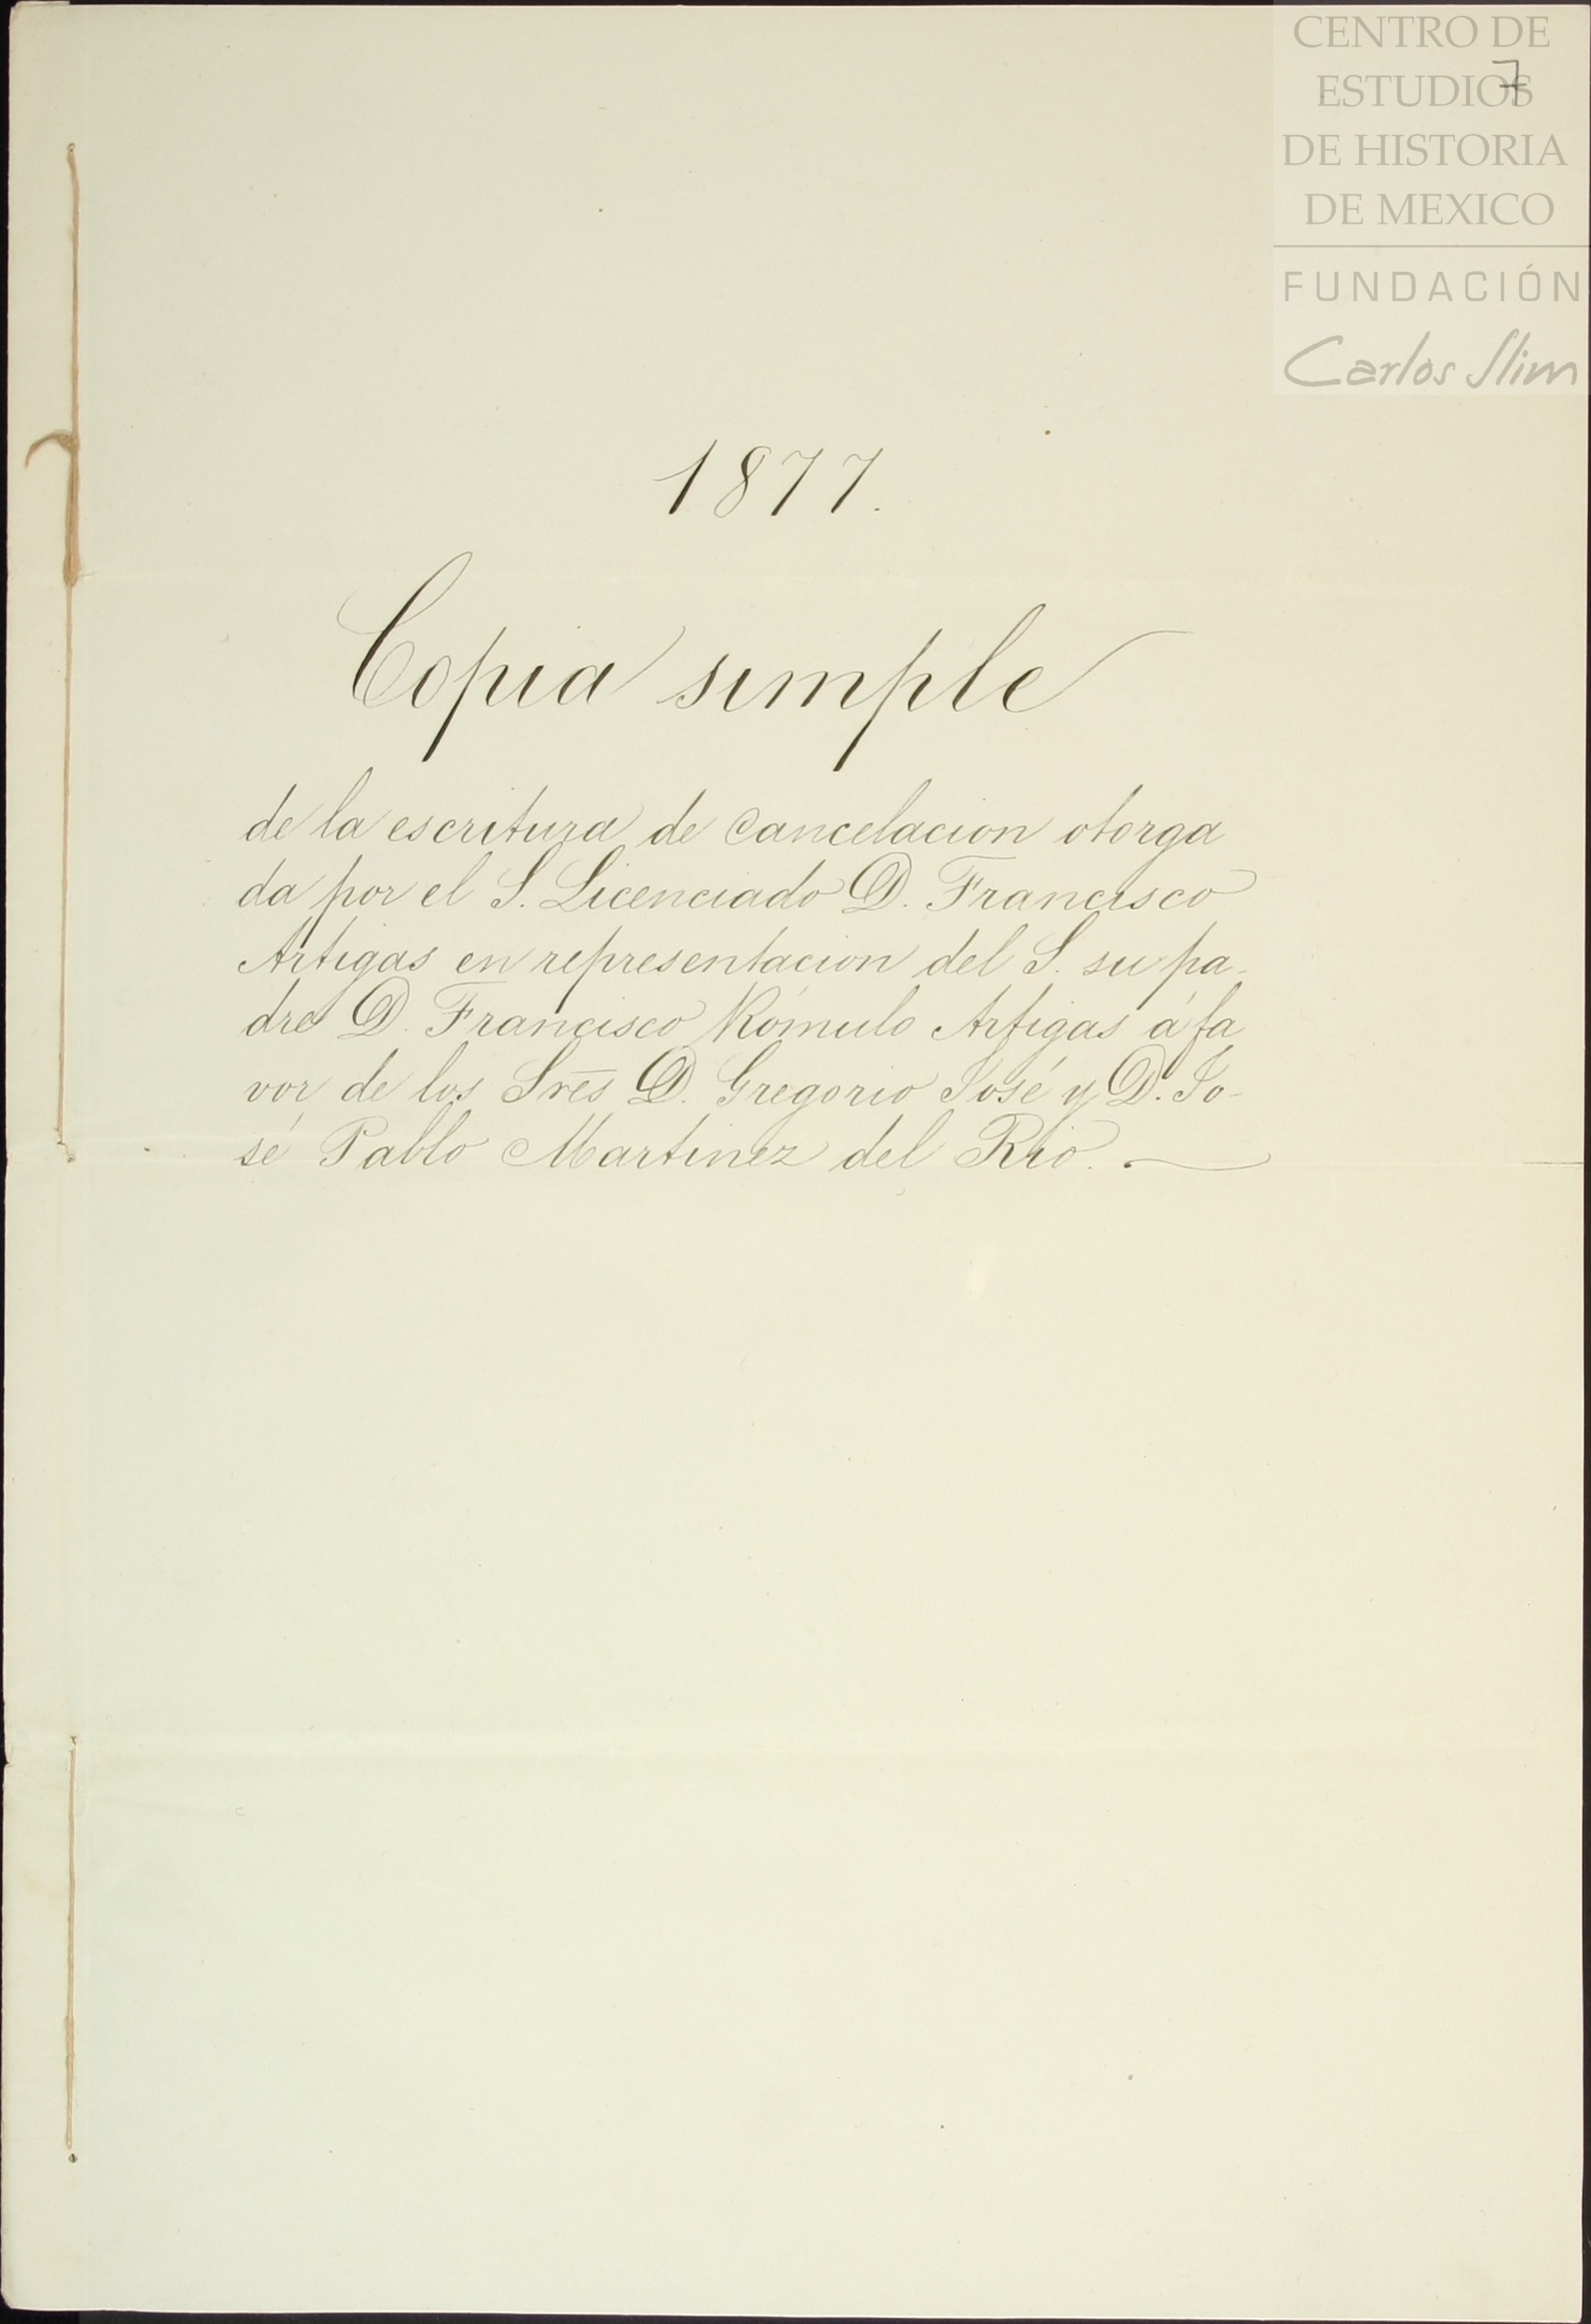 CENTRO DE
ESTUDIOS
7
DE HISTORIA
DE MEXICO
FUNDACIÓN
Carlos Slim
1877.
Copia simple
de la escritura de cancelacion otorga
da por el S. Licenciado D. Francisco
Artigas en representacion del S. su pa-
dre D. Francisco Rómulo Artigas á fa
vor de los Sres D. Gregorio José y D. Jo-
sé Pablo Martinez del Rio.